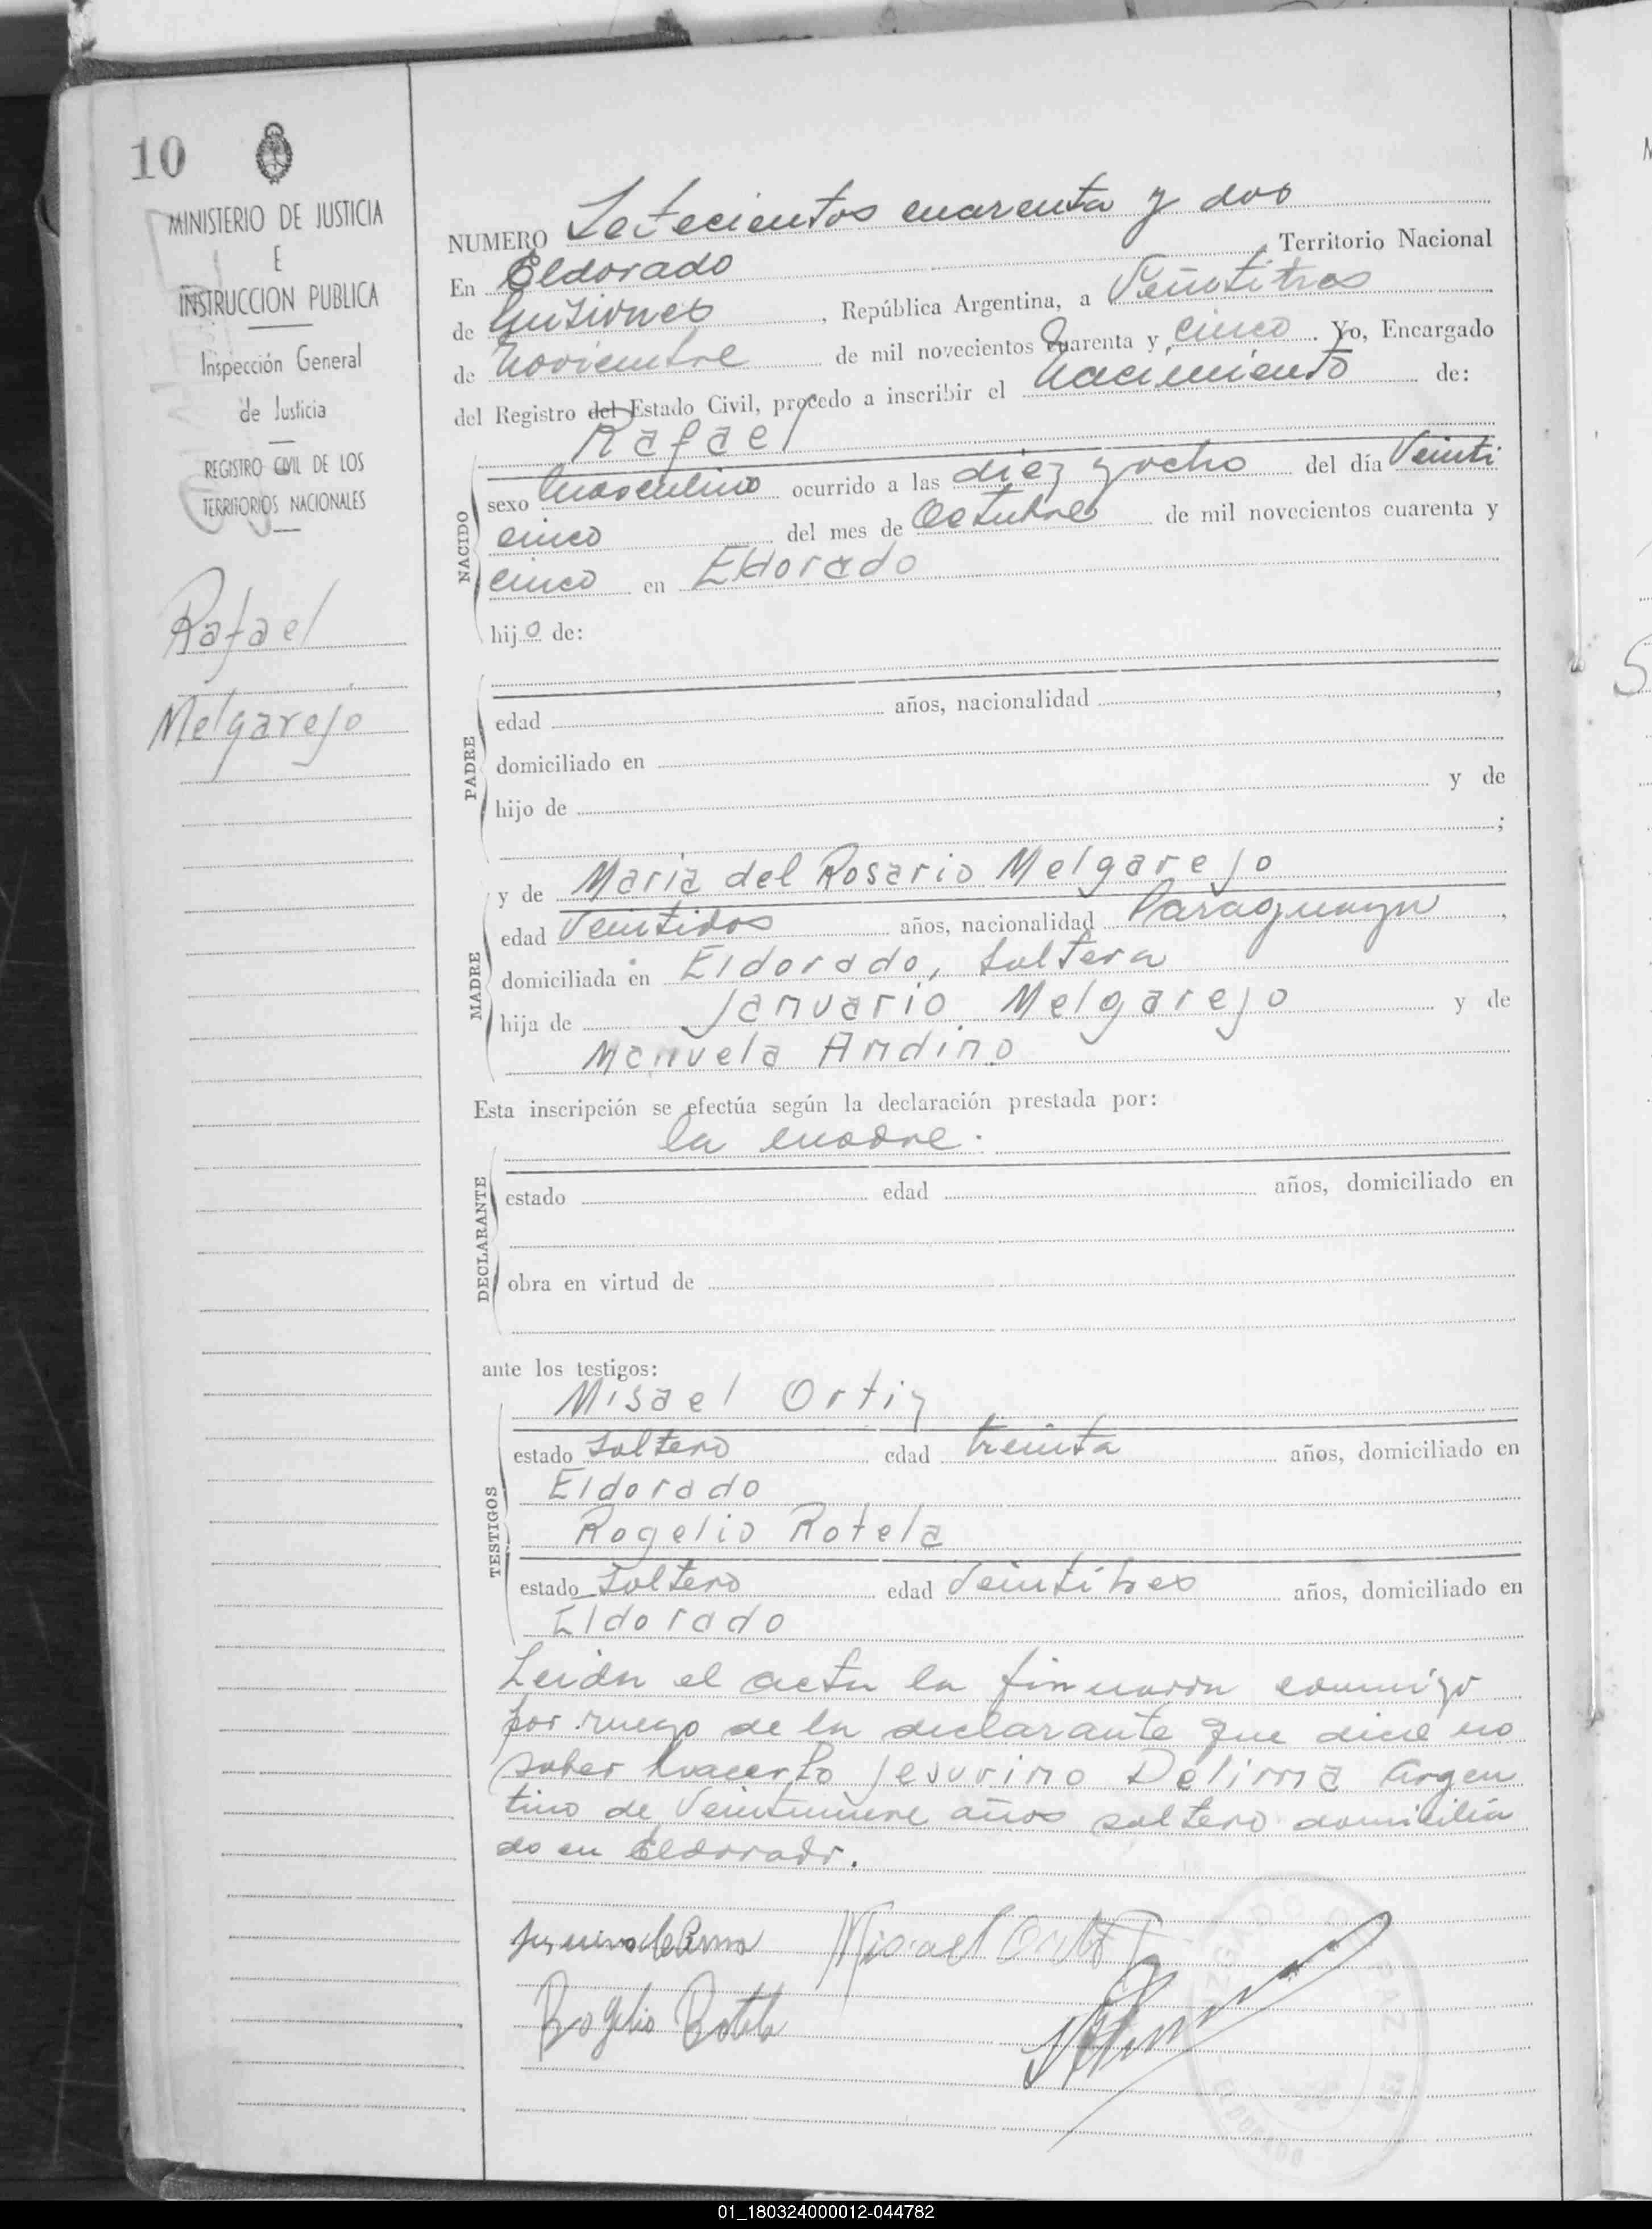 10
MINISTERIO DE JUSTICIA
E
INSTRUCCION PUBLICA
Inspección General
de Justicia
REGISTRO CIVIL DE LOS
TERRITORIOS NACIONALES
Rafael
Melgarejo
NUMERO Setecientos cuarenta y dos
En Eldorado, Territorio Nacional
de Misiones, República Argentina, a Veintitres
de Noviembre de mil novecientos cuarenta y cinco. Yo, Encargado
del Registro del Estado Civil, procedo a inscribir el Nacimiento de:
Rafael
NACIDO
sexo Masculino ocurrido a las diez y ocho del día Veinti
cinco del mes de Octubre de mil novecientos cuarenta y
cinco en Eldorado
hijo de:
PADRE
edad años, nacionalidad ,
domiciliado en
hijo de y de
;
MADRE
y de Maria del Rosario Melgarejo
edad Veintidos años, nacionalidad Paraguaya,
domiciliada en Eldorado, soltera
hija de Januario Melgarejo y de
Manuela Andino
Esta inscripción se efectúa según la declaración prestada por:
la madre.
DECLARANTE
estado edad años, domiciliado en
obra en virtud de
ante los testigos:
TESTIGOS
Misael Ortiz
estado soltero edad treinta años, domiciliado en
Eldorado
Rogelio Rotela
estado soltero edad Veintitres años, domiciliado en
Eldorado
Leida el acta la firmaron conmigo
por ruego de la declarante que dice no
saber hacerlo Jesurino Delima Argen
tino de Veintinueve años soltero domicilia
do en Eldorado.
Misael Ortiz
Rogelio Rotela
ELDORADO
01_180324000012-044782